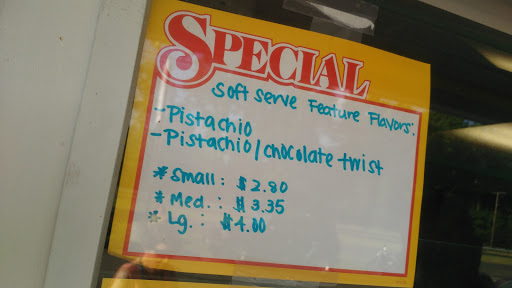 SPECIAL
Soft Serve Feature Flavors:
-Pistachio
-Pistachio/chocolate twist
* Small: $2.80
* Med.: $3.35
* Lg.: $4.00